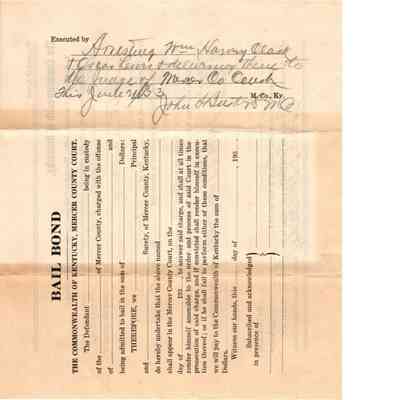 Executed by
Arresting Wm Harvey Clark
& Oscar Lewis & delivering them to
the Judge of Mercer Co Court
This June 24 33
M. Co., Ky.
John
BAIL BOND
THE COMMONWEALTH OF KENTUCKY, MERCER COUNTY COURT.
The Defendant being in custody
of the of Mercer County, charged with the offense
of and
being admitted to bail in the sum of Dollars:
THEREFORE, we Principal
and Surety, of Mercer County, Kentucky,
do hereby undertake that the above named
shall appear in the Mercer County Court, on the
day of 193 , to answer said charge, and shall at all times
render himself amenable to the order and process of said Court in the
prosecution of said charge, and if convicted shall render himself in execu-
tion thereof; or if he shall fail to perform either of these conditions, that
we will pay to the Commonwealth of Kentucky the sum of
Dollars.
Witness our hands, this day of 193
Subscribed and acknowledged
in presence of